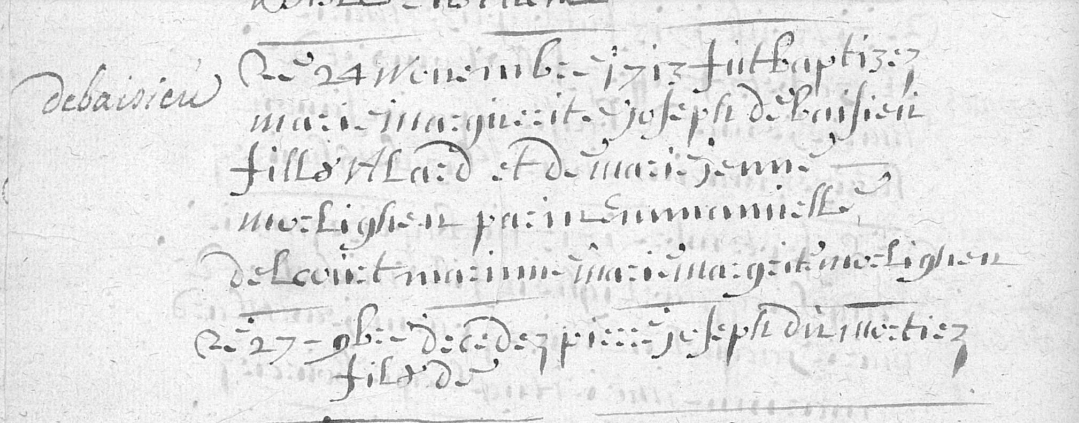 debaisieu
Le 24 novembre 1713 fut baptizez
marie marguerite joseph debaisieu
fille Alard et de marie jenne
morlighen parin Emmanuelle
delcourt marinne marie margrite morlighen
Le 27 = 9bre decedez pierre joseph du mortiez
fils de